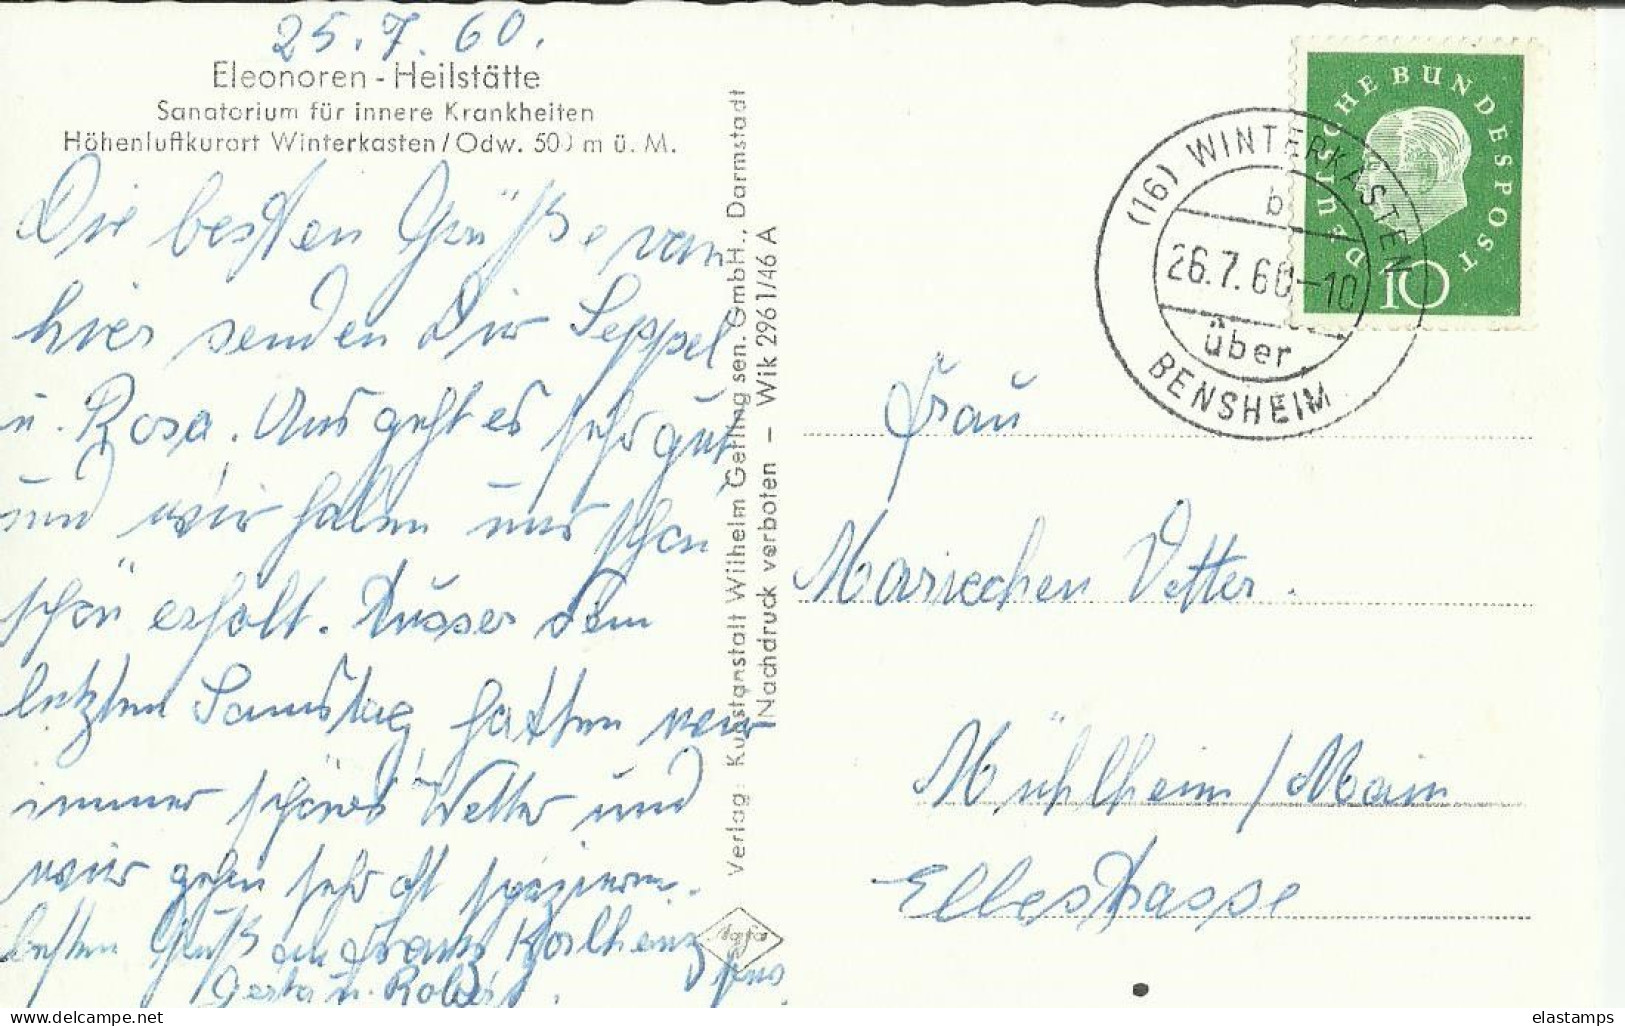 25.7.60.
Eleonoren-Heilstätte
Sanatorium für innere Krankheiten
Höhenluftkurort Winterkasten/Odw. 500 m ü. M.
Die besten Grüße von
hier senden Dir Seppel
u. Rosa. Uns geht es sehr gut
und wir haben uns schon
schön erholt. Ausser dem
letzten Samstag hatten wir
immer schönes Wetter und
wir gehen sehr oft spazieren.
besten Gruß an Franz Karlheinz
Gerta u. Robert.
Verlag: Kunstanstalt Wilhelm Gerling sen. GmbH., Darmstadt
Nachdruck verboten — Wik 2961/46 A
DEUTSCHE BUNDESPOST
10
(16) WINTERKASTEN
b
26.7.60-10
über
BENSHEIM
Frau
Mariechen Vetter.
Mühlheim/Main
Ellestrasse
elastamps